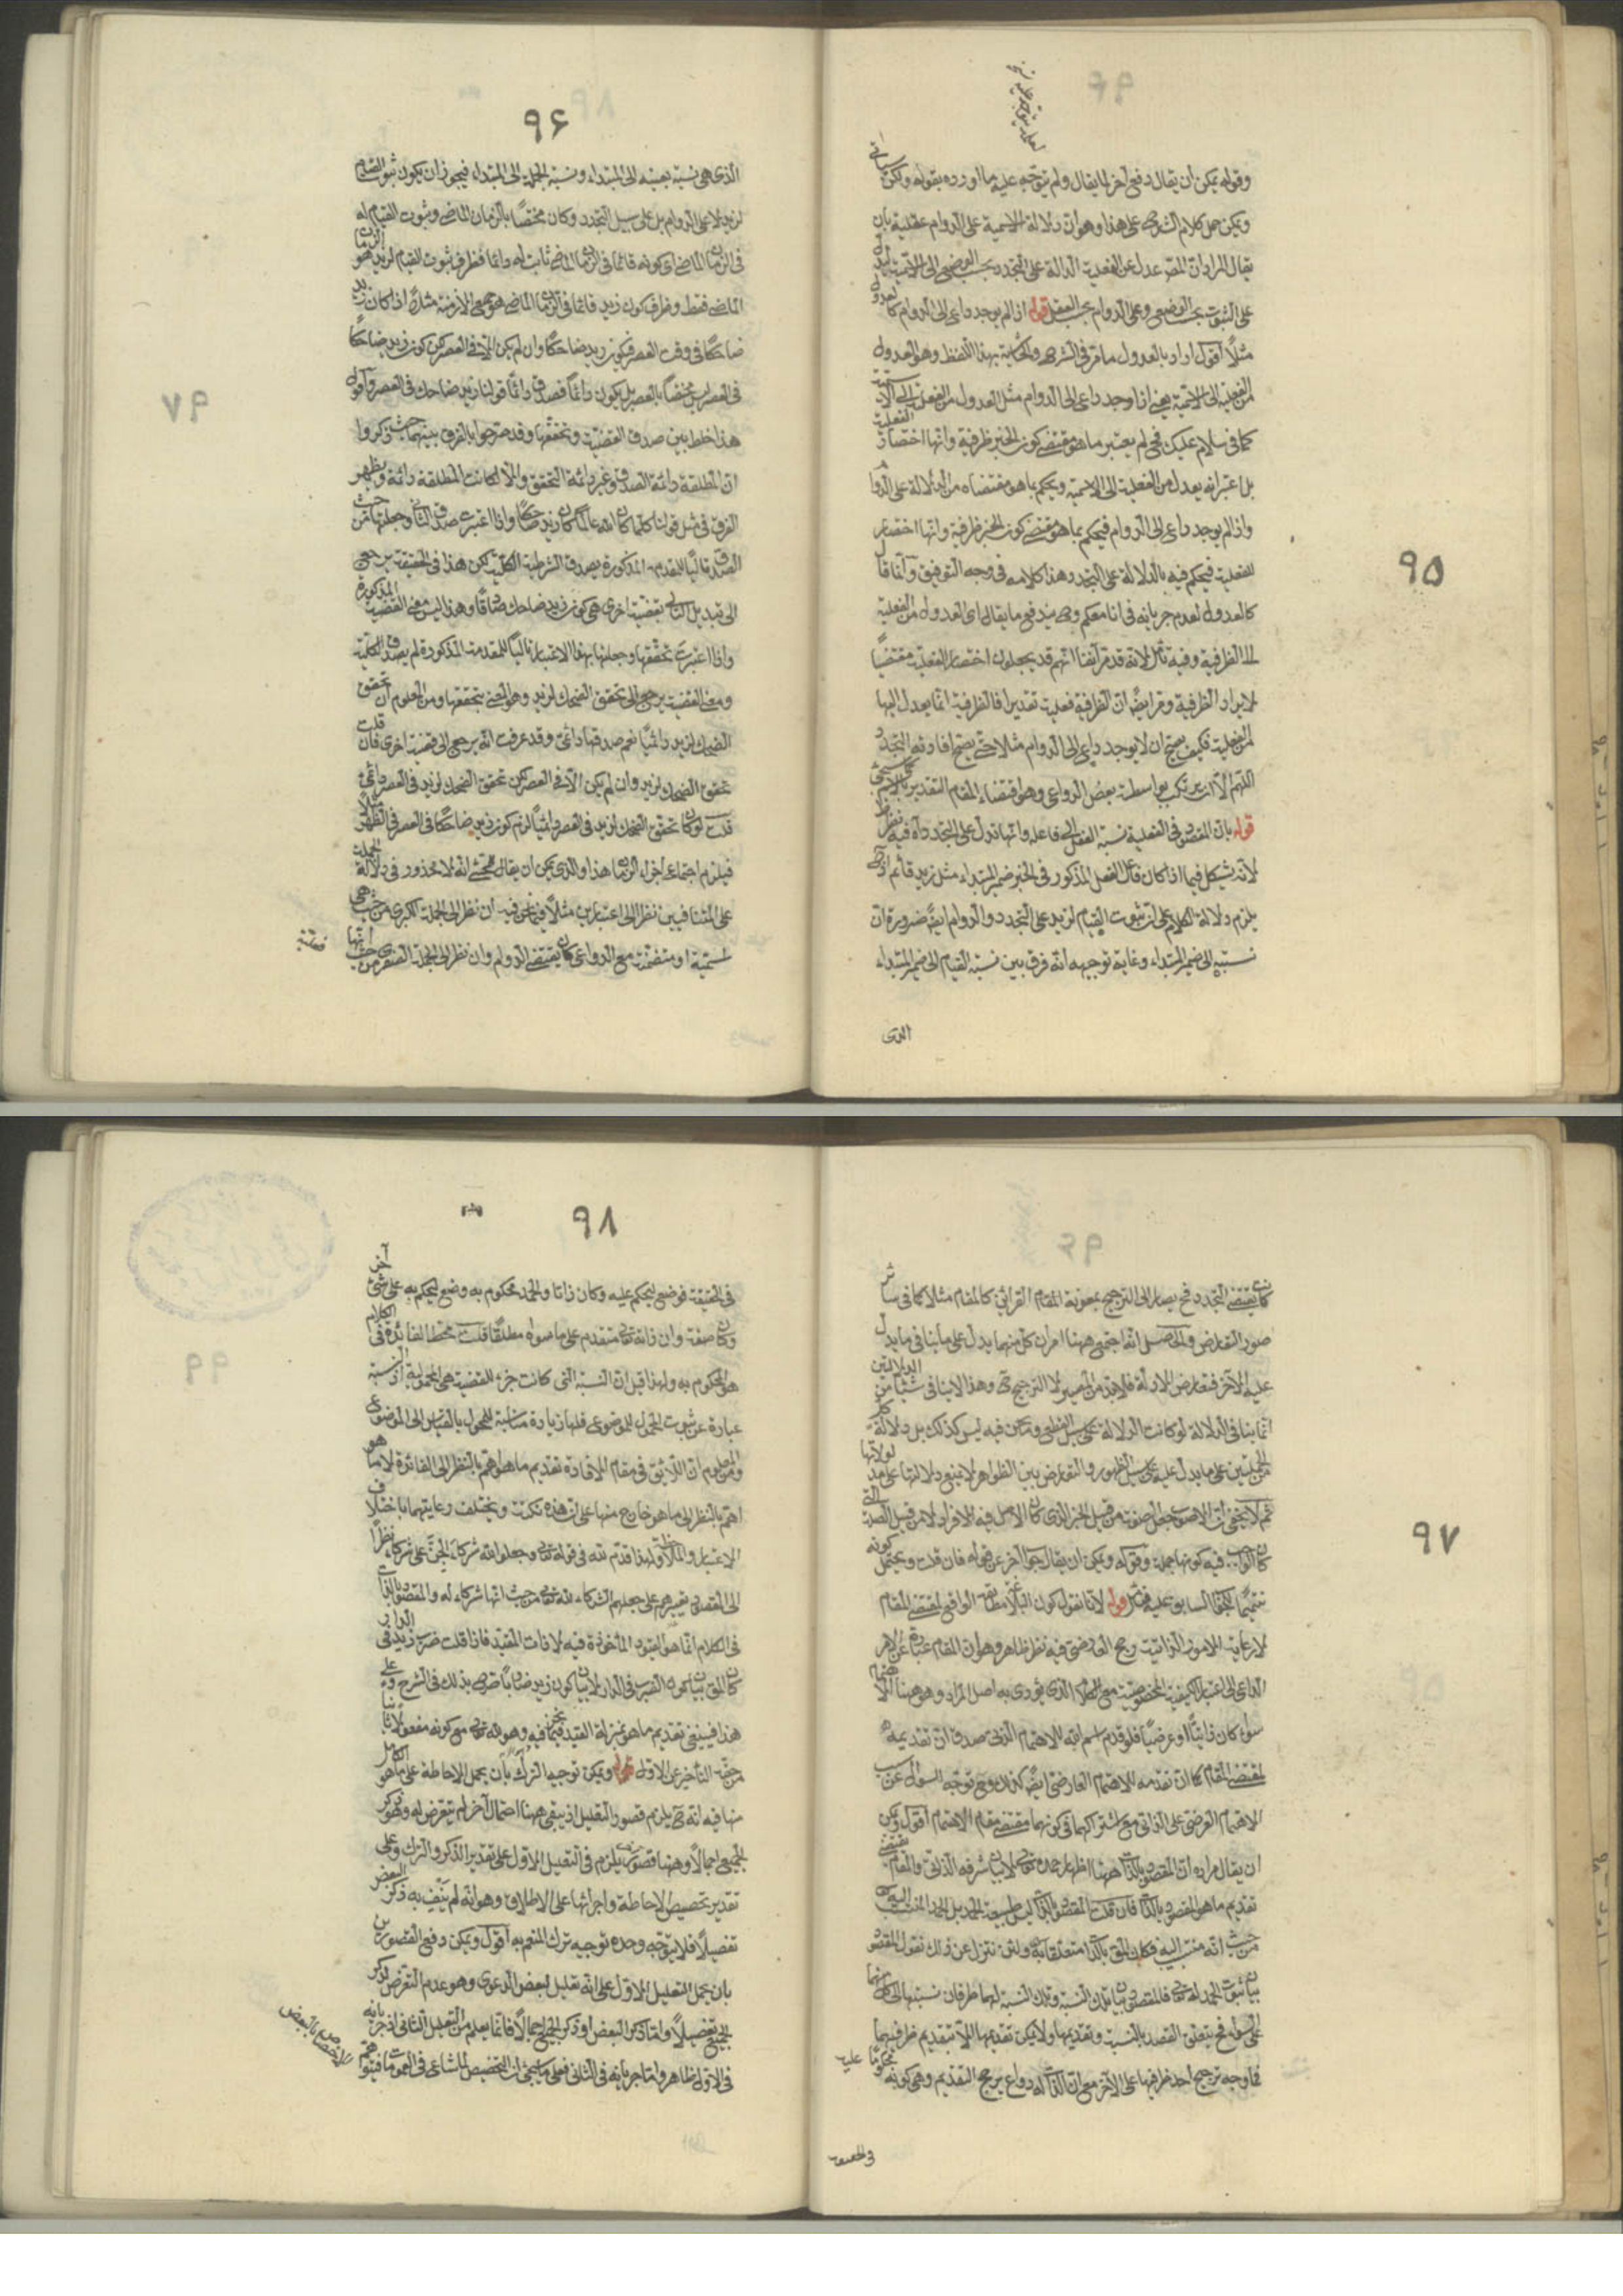 ٩٥
وقوله يمكن ان يقال دفع آخر لما يقال ولم يتوجه عليه ما اورده بقوله ولكن
ويمكن حمل كلام الشرح على هذا وهو ان دلالة الاسمية على الدوام عقلية بان
يقال المراد ان المص عدل عن الفعلية الدالة على التجدد بحسب الوضع الى الاسمية ليدل
على الثبوت بحسب الوضع وعلى الدوام بحسب العقل قوله اذا لم يوجد داع الى الدوام كالعدول
مثلا اقول اراد بالعدول ما مر في الشرح والحاشية بهذا اللفظ وهو العدول
من الفعلية الى الاسمية يعني اذا وجد داع الى الدوام مثل العدول من الفعلية الى الاسمية
كما في سلام عليك فح لم يعتبر ما هو مقتضى كون الخبر ظرفية وانها اختصار الفعلية
بل اعتبر انه يعدل من الفعلية الى الاسمية ويحكم بما هو مقتضاه من الدلالة على الدوام
واذا لم يوجد داع الى الدوام فيحكم بما هو مقتضى كون الخبر ظرفية وانها اختصار
للفعلية فيحكم فيه بالدلالة على التجدد هذا كلامه في وجه التوفيق وانما قال
كالعدول لعدم جريانه في انا معكم وح يندفع ما يقال اي العدول من الفعلية
الى الظرفية وفيه تأمل لانه قد مر آنفا انهم قد يجعلون اختصار الفعلية مقتضيا
لايراد الظرفية ومر ايضا ان الظرفية فعلية تقديرا فالظرفية انما يعدل اليها
من الفعلية فكيف يصح ان لا يوجد داع الى الدوام مثلا حتى يصح افادته التجدد
اللهم الا ان يرتكب بواسطة بعض الدواعي وهو اقتضاء المقام التقدير بالاسم
قوله بان المقصود في الفعلية نسبة الفعل الى فاعله وانها تدل على التجدد آه فيه نظر
لانه يشكل فيما اذا كان فاعل الفعل المذكور في الخبر ضمير المبتداء مثل زيد قائم
يلزم دلالة الكلام على ثبوت القيام لزيد على التجدد والدوام ايضا ضرورة ان
نسبته الى ضمير المبتداء وغاية توجيهه انه فرق بين نسبة القيام الى ضمير المبتداء
الذي
٩٦
الذي هي نسبة بعينه الى المبتداء ونسبة الجملة الى المبتداء فيجوز ان يكون ثبوت القيام
لزيد لا على الدوام بل على سبيل التجدد وكان مختصا بالزمان الماضي وثبوت القيام له
في الزمان الماضي اي كونه قائما في الزمان الماضي ثابت له دائما فظرف ثبوت القيام لزيد هو الزمان
الماضي فقط وظرف كون زيد قائما في الزمان الماضي هو جميع الازمنة مثلا اذا كان زيد
ضاحكا في وقت العصر فكون زيد ضاحكا وان لم يكن الا في العصر لكن كون زيد ضاحكا
في العصر ليس مختصا بالعصر بل يكون دائما فصدق دائما قولنا زيد ضاحك في العصر واقول
هذا خلط بين صدق القضية وتحققها وقد صرحوا بالفرق بينهما حيث ذكروا
ان المطلقة دائمة الصدق وغير دائمة التحقق والا لكانت المطلقة دائمة ويظهر
الفرق في مثل قولنا كلما كان الله عالما كان زيد ضاحكا واذا اعتبرت صدق التالي وجعلتها من حيث
الصدق تاليا للمقدم المذكورة يصدق الشرطية الكلية لكن هذا في الحقيقة يرجع
الى تبديل التالي بقضية اخرى هي كون زيد ضاحك صادقا وهذا ليس معنى القضية المذكورة
واذا اعتبرت تحققها وجعلتها بهذا الاعتبار تاليا للمقدمة المذكورة لم يصدق الكلية
ومعنى القضية يرجع الى تحقق الضحك لزيد وهو المعني بتحققها ومن المعلوم ان تحقق
الضحك لزيد دائميا نعم صدقها دائمي وقد عرفت انه يرجع الى قضية اخرى فان قلت
تحقق الضحك لزيد وان لم يكن الا في العصر لكن تحقق الضحك لزيد في العصر دائمي
قلت لو كان تحقق الضحك لزيد في العصر دائميا لزم كون زيد ضاحكا في العصر في الظهر مثلا
فيلزم اجتماع اجزاء الزمان هذا والذي يمكن ان يقال للمحشي انه لا محذور في دلالة الجملة
على المتنافيين نظرا الى اعتبارين مثلا فيما نحن فيه ان نظر الى الجملة الكبرى من حيث هي
اسمية او منضمة مع الدواعي كان يقتضي الدوام وان نظر الى الجملة الصغرى من حيث انها فعلية
٩٧
كان يقتضي التجدد فح يصار الى الترجيح بمعونة المقام القرائن كالمقام مثلا كما في سائر
صور التعارض والحاصل انه اجتمع ههنا امران كل منهما يدل على ما ينافي ما يدل
عليه الآخر فتعارض الادلة فلابد من المصير الى الترجيح وهذا لا ينافي شيئا من الدلالتين
انما ينافي الدلالة لو كانت الدلالة على سبيل القطع وما نحن فيه ليس كذلك بل دلالة كل
من الجملتين على ما يدل عليه على سبيل الظهور والتعارض بين الظواهر لا يمنع دلالتها على مدلولاتها
ثم لا يخفى ان الاصوب جعل صفته من قبيل الخبر الذي كان الاصل فيه الافراد لا من قبيل الصلة التي
كان الواجب فيه كونها جملة وقوله ويمكن ان يقال جواب آخر عن قوله فان قلت ويحتمل كونه
تتميما للجواب السابق عليه فتأمل قوله لانا نقول كون البلاغة مطابقة الواقع لمقتضى المقام
لا رعاية للامور الذاتية رجح العارضي فيه نظر ظاهر وهو ان المقام عبارة عن الامر
الداعي الى اعتبار الكيفية المخصوصة مع الكلام الذي يؤدى به اصل المراد وهو ههنا الاهتمام
سواء كان ذاتيا او عرضيا فلو قدم اسم الله للاهتمام الذاتي صدق ان تقديمه
لمقتضى المقام كما ان تقدمه للاهتمام العارضي ايضا كذلك ومع توجه السؤال عن سبب
الاهتمام العرضي على الذاتي مع اشتراكهما في كونهما مقتضى مقام الاهتمام اقول ويمكن
ان يقال مراده ان المقصود بالذات ههنا اظهار حمده تعالى لا بيان شرفه الذاتي والمقام يقتضي
تقديم ما هو المقصود بالذات فان قلت المقصود بالذات ليس طبيعة الحمد بل الحمد المنتسب اليه
من حيث انه منتسب اليه فكان المقصود بالذات متعلقا به ولئن تنزل عن ذلك نقول المقصود
بيان ثبوت الحمد له تعالى فالمقصود بيان تلك النسبة وتلك النسبة لها طرفان نسبتها الى كل منهما
على السواء فح يتعلق القصد بالنسبة وتقديمها ولا يمكن تقديمها الا بتقديم طرفيها
فما وجه ترجيح احد طرفيها على الآخر مع ان لله دواع يرجح التقديم وهي كونه محكوما عليه
في الحقيقة
٩٨
في الحقيقة فوضع ليحكم عليه وكان ذاتا والحمد محكوم به وضع ليحكم به على شئ آخر
وكان صفة وان ذاته تعالى متقدم على ما سواه مطلقا قلت محط الفائدة في الكلام
هو المحكوم به ولهذا قيل ان النسبة التي كانت جزء للقضية هي المحمولية اذ النسبة
عبارة عن ثبوت المحمول للموضوع فلها زيادة مناسبة للمحمول بالقياس الى الموضوع
ومن المعلوم ان اللائق في مقام الافادة تقديم ما هو اهم بالنظر الى الفائدة لا ما هو
اهم بالنظر الى ما هو خارج منها على ان هذه نكتة ويختلف رعايتها باختلاف
الاعتبار والملاحظة ولهذا قدم لله في قوله تعالى وجعلوا لله شركاء الجن على شركاء نظرا
الى المقصود تعييرهم على جعلهم الشركاء لله تعالى من حيث انها شركاء له والمقصود بالذات
في الكلام انما هو القيود المأخوذة فيه لا ذات المقيد فاذا قلت ضرب زيد في الدار
كان المقصود بيان كون الضرب في الدار لا بيان كون زيد ضاربا صرح بذلك في الشرح وبناء على
هذا فينبغي تقديم ما هو بمنزلة القيد فيما نحن فيه وهو لله تعالى مع كونه مفعولا ثانيا
من حقه التأخير عن الاول قوله ويمكن توجيه الترك بان يحمل الاحاطة على ما هو الكامل
منها فيه انه ح يلزم قصور التعليل اذ يبقى ههنا احتمال آخر لم يتعرض له وهو ذكر
الجميع اجمالا وههنا قصور يلزم في التعليل الاول على تقدير الذكر والترك وعلى
تقدير تخصيص الاحاطة واجرائها على الاطلاق وهو انه لم ينف به ذكر البعض
تفصيلا فلا يتوجه وحده توجيه ترك المنعم به اقول ويمكن دفع القصورين
بان يحمل التعليل الاول على انه تعليل لبعض الدعوى وهو عدم التعرض لذكر
الجميع تفصيلا واما ذكر البعض او ذكر الجميع اجمالا فانما يعلم من التعليل الثاني اذ جريانه
في الاول ظاهر واما جريانه في الثاني فعلى ما سيجئ ان التخصيص لما شاع في العمومات فيتوهم
الاختصاص بالبعض